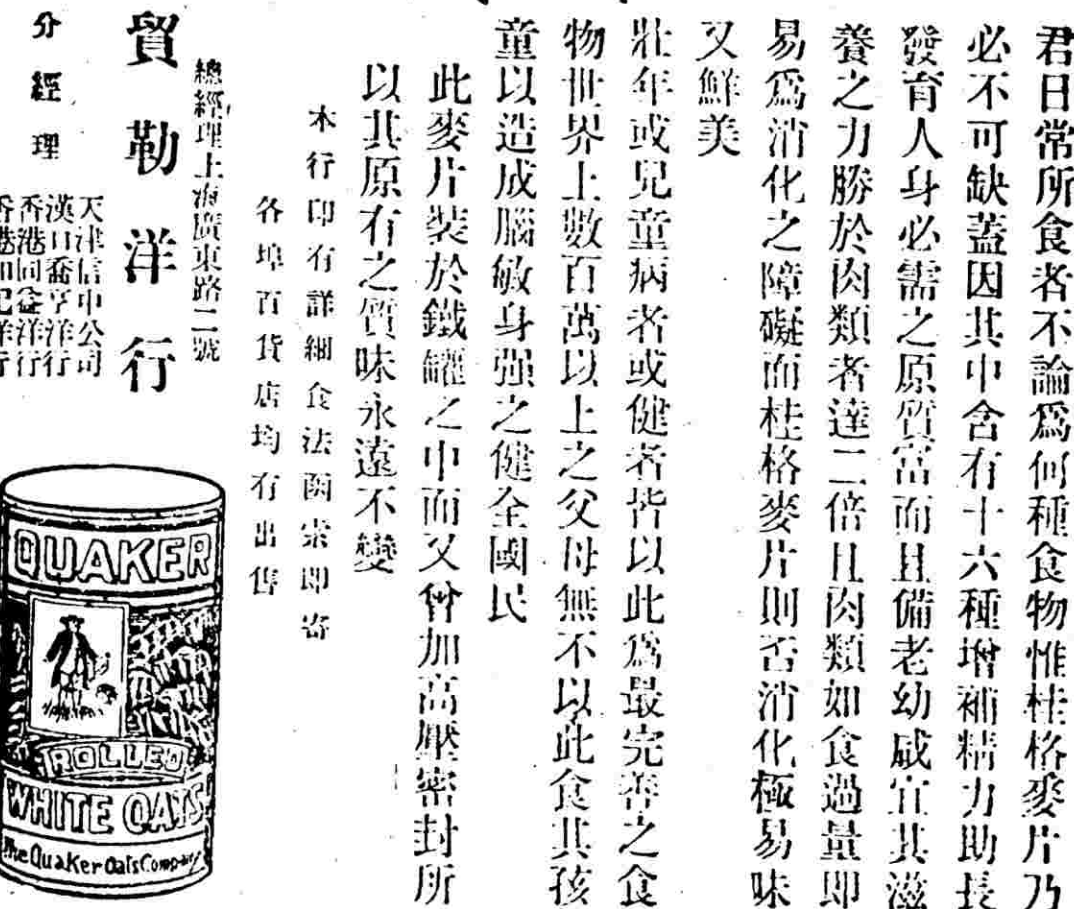 君日常所食者不論爲何種食物惟桂格麥片乃
必不可缺蓋因其中含有十六種增補精力助長
發育人身必需之原質富而且備老幼咸宜其滋
養之力勝於肉類者達二倍且肉類如食過量即
易爲消化之障礙而桂格麥片則否消化極易味
又鮮美
壯年或兒童病者或健者皆以此爲最完善之食
物世界上數百萬以上之父母無不以此食其孩
童以造成腦敏身强之健全國民
此麥片裝於鐵罐之中而又曾加高壓密封所
以其原有之質味永遠不變
本行印有詳細食法函索即寄
各埠百貨店均有出售
總經理上海廣東路二號
貿勒洋行
分經理
天津信中公司
漢口喬亨洋行
香港同益洋行
香港和記洋行
QUAKER
ROLLED
WHITE OATS
The Quaker Oats Company